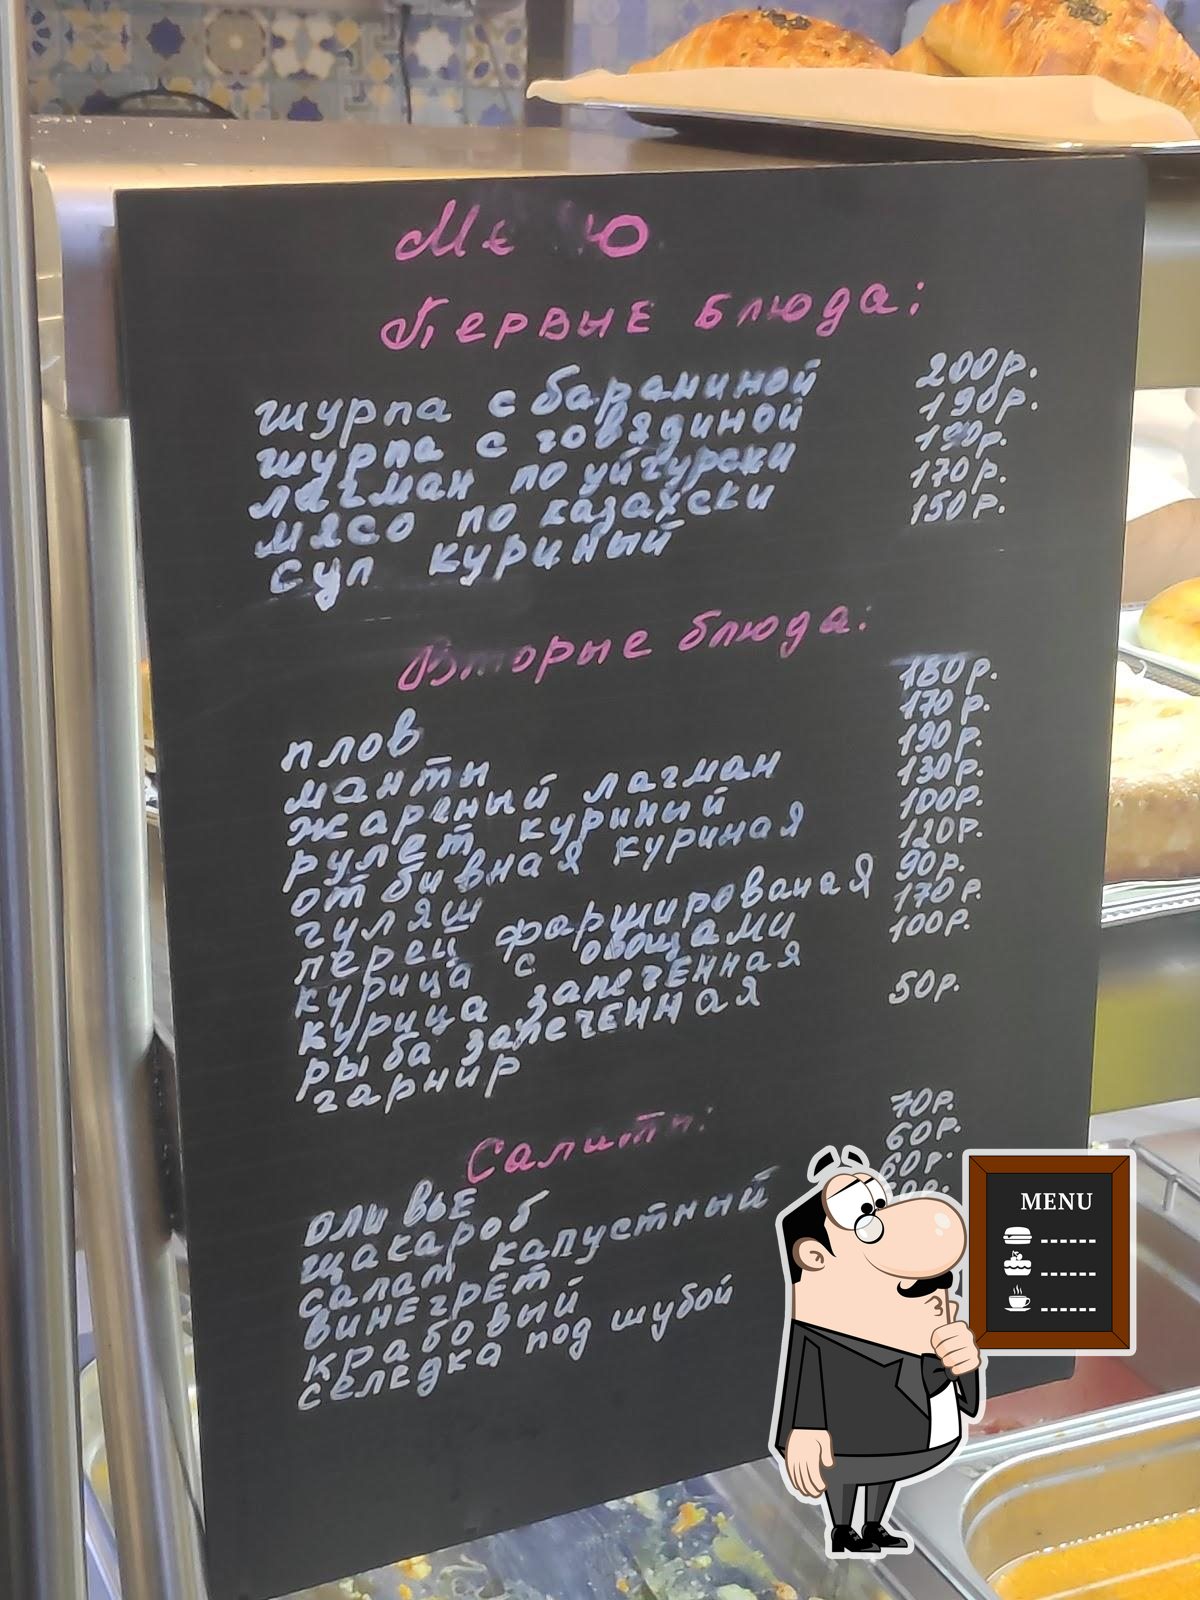 Ме ю
Первые блюда:
шурпа с бараниной 200р.
шурпа с говядиной 190р.
лагман по уйгурски 190р.
мясо по казахски 170р.
суп куриный 150р.
Вторые блюда:
плов 180р.
манты 170р.
жареный лагман 190р.
рулет куриный 130р.
отбивная куриная 100р.
гуляш 120р.
перец фаршированая 90р.
курица с овощами 170р.
курица запеченная 100р.
рыба запеченная
гарнир 50р.
Салаты:
оливье 70р.
щакароб 60р.
салат капустный 60р.
винегрет
крабовый
селедка под шубой
MENU